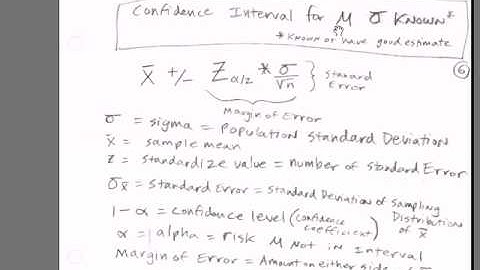 Confidence Interval for μ σ KNOWN*
* KNOWN or have good estimate
6
x̄ +/- Zα/2 * σ/√n } Standard Error
Margin of Error
σ = sigma = Population Standard Deviation
x̄ = sample mean
Z = standardize value = number of standard Error
σx̄ = Standard Error = Standard Deviation of sampling Distribution of x̄
1 - α = confidence level (confidence coefficient)
α = alpha = risk μ Not in Interval
Margin of Error = Amount on either side